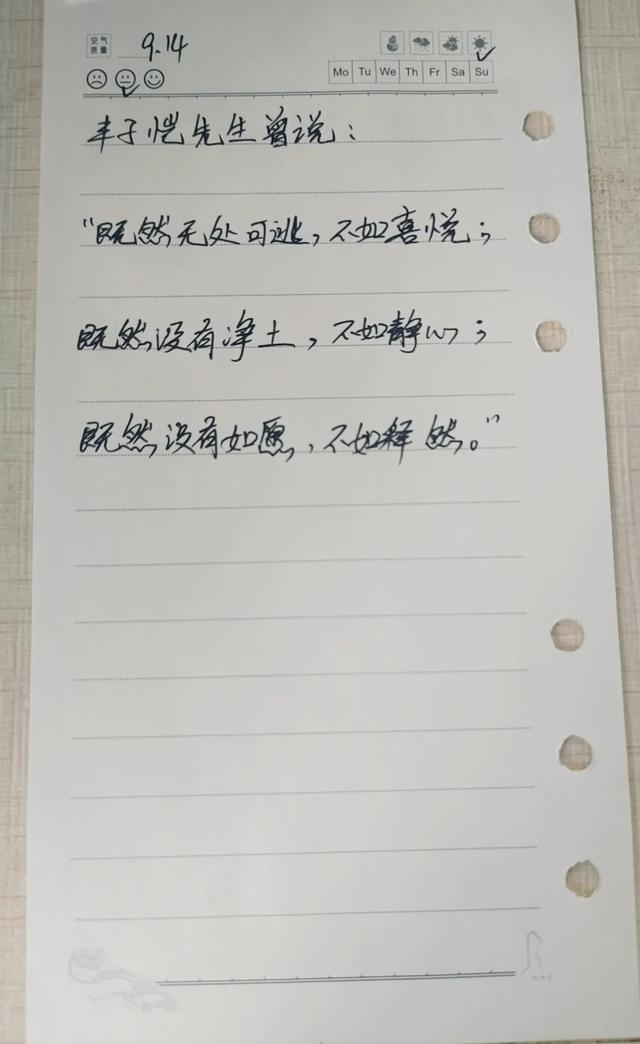 空气
质量
9.14
Mo Tu We Th Fr Sa Su
丰子恺先生曾说：
“既然无处可逃，不如喜悦；
既然没有净土，不如静心；
既然没有如愿，不如释然。”